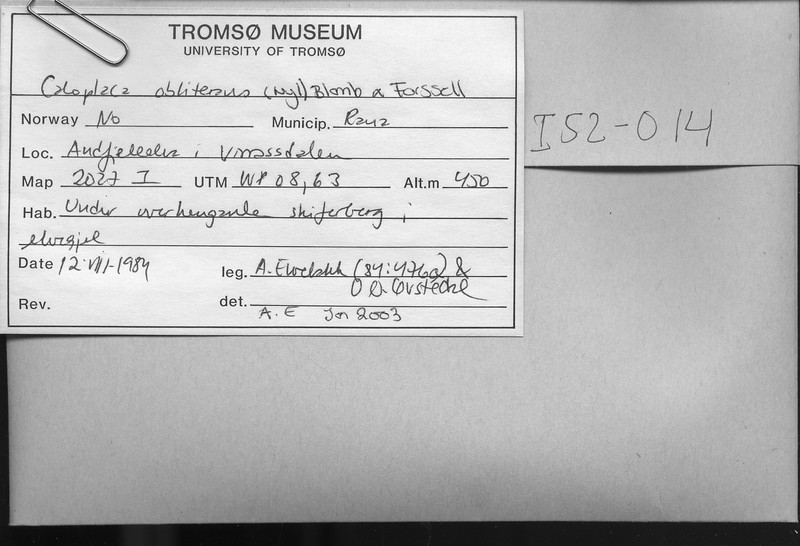 TROMSØ MUSEUM
UNIVERSITY OF TROMSØ
Caloplaca obliterans (Nyl) Blomb & Forssell
Norway No Municip. Rana
Loc. i Virvassdalen
Map 2027 I UTM WP 08,63 Alt.m 450
Hab. Under overhengande skiferberg i
elvegjel
Date 12.VII-1984 leg. A. Elvebakk (84:476a) &
O D. Øvstedal
Rev. det. A. E Jan 2003
I52-014